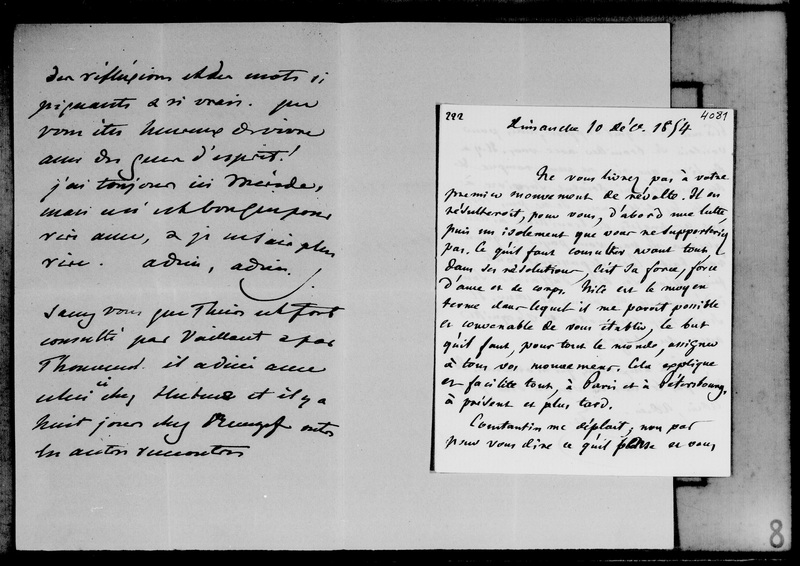 des réflexions et des mots si
piquants & si vrais. que
vous êtes heureux de vivre
avec des gens d'esprit!
j'ai toujours ici
mais
rire avec, & je
rire. adieu, adieu.
Savez vous que Thiers est fort
consulté par Vaillant & par
Thouvenel. il a diné avec
celui ci chez Hubner et il y a
huit jours chez entre
les autres rencontres
222 4081
Dimanche 10 déce. 1854
Ne vous livrez pas à votre
premier mouvement de révolte. Il en
résulteroit, pour vous, d'abord une lutte,
puis un isolement que vous ne supporteriez
pas. Ce qu'il faut consulter avant tout
dans ses résolutions, c'est sa force, force
d'ame et de corps. Nice est le moyen
terme dans lequel il me paroit possible
et convenable de vous établir, le but
qu'il faut, pour tout le monde, assigner
à tous vos mouvemens. Cela explique
et facilite tout, à Paris et à Pétersbourg,
à présent et plus tard.
Constantin me déplait; non pas
pour vous dire ce qu'il pense et vous
8